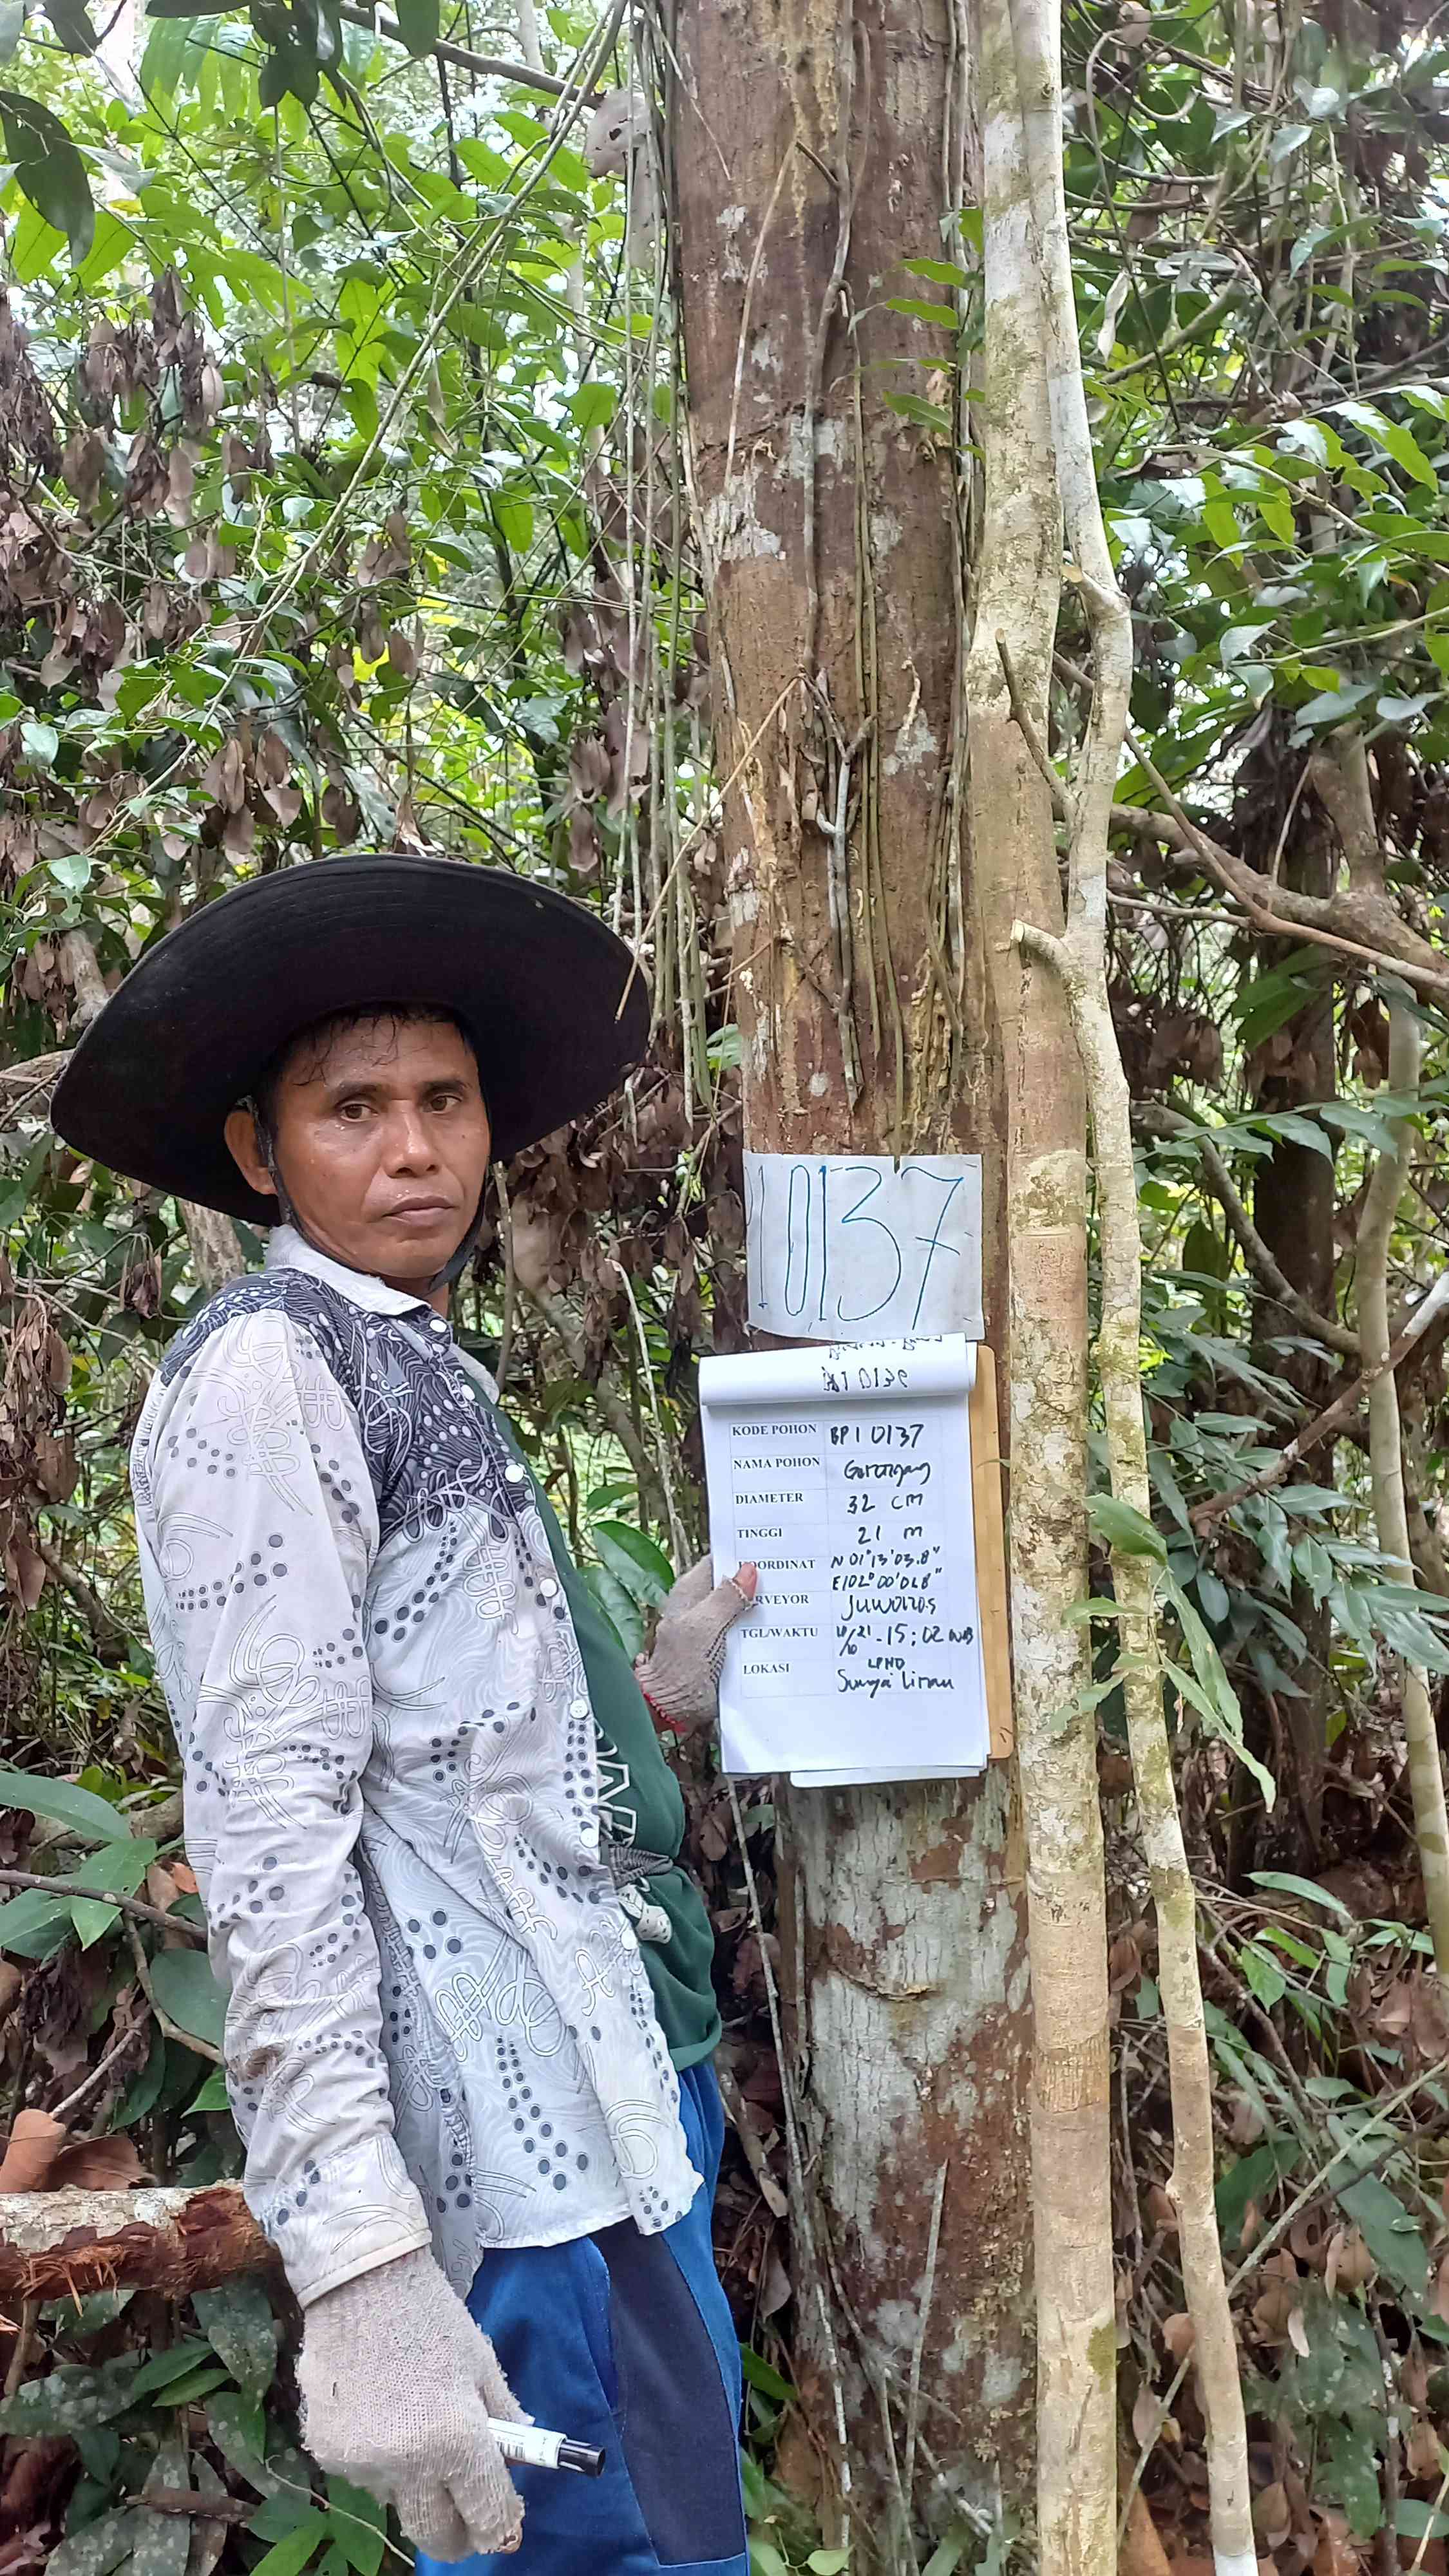 10137
KODE POHON BP1 0137
NAMA POHON Gerenggang
DIAMETER 32 CM
TINGGI 21 m
KOORDINAT N 01°13'03.8"
E102°00'04.8"
SURVEYOR
TGL/WAKTU 15:02 WIB
LOKASI LPHD
Sungai Linau